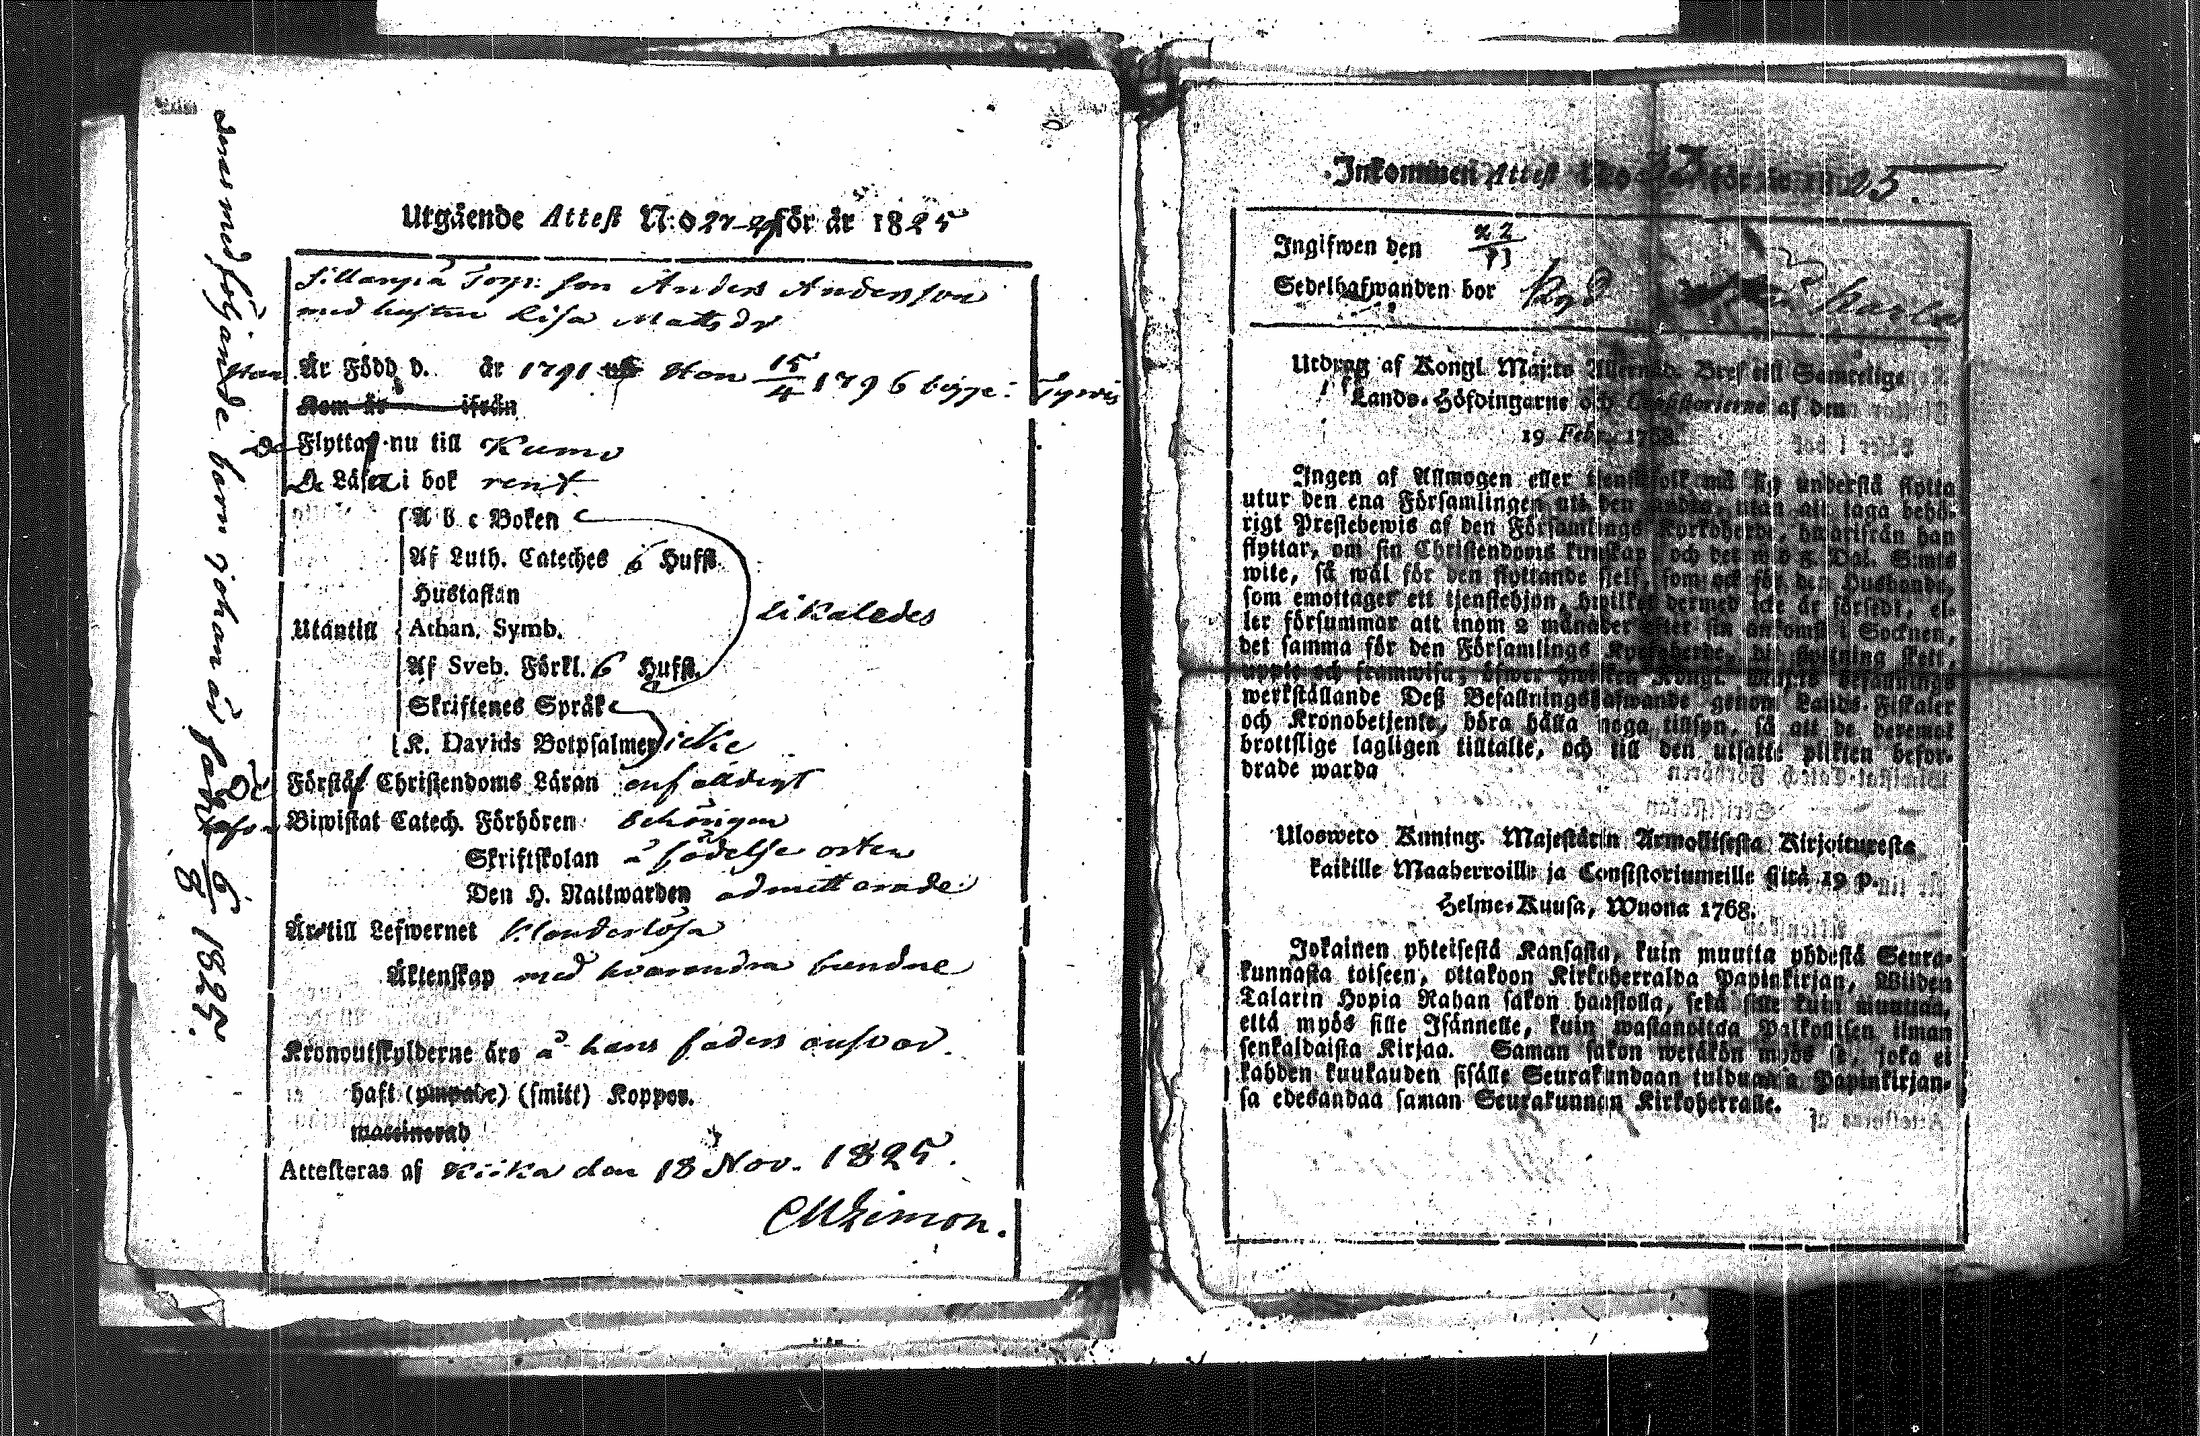 Utgående Attest N:o 27-29 för år 1825
Sillanpää Torp: son Anders Andersson
med hustru Lisa Matts dr
Han Är Född d. år 1791 Hon 15/4 1796 bägge i Tyrvis
Kom år ifrån
De Flytta nu till Kumo
De Läsa i bok rent
A b c Boken
Af Luth. Cateches 6 Hufst.
Hustaflan
likaledes
Utantill Athan. Symb.
Af Sveb. Förkl. 6 Hufst.
Skriftenes Språk
K. Davids Botpsalmer icke
Förstå Christendoms Läran enfaldigt
Biwistat Catech. Förhören behörigen
Skriftskolan å födelse orten
Den H. Nattwarden admitterade
Äro till Lefwernet klanderlösa
Äktenskap med hvarandra bundne
Kronoutskylderne äro å hans faders ansvar.
haft (ympade) (smitt) Koppor.
waccinerad
Attesteras af Kiika den 18 Nov. 1825.
CM Limon.
deras medföljande barn Johan är född 6/8 1825.
Inkommen Attest N:o 33 för år 1825.
Ingifwen den 22/11
Sedelhafwanden bor
Utdrag af Kongl. Maj:ts Allernåd. Bref till Samtelige
Lands-Höfdingarne och Consistorierne af den
19 Febr. 1768.
Ingen af Allmogen eller tjenstefolk må sig understå flytta
utur den ena Församlingen uti den andra, utan att taga behö-
rigt Prestebewis af den Församlings Kyrkoherde, hwarifrån han
flyttar, om sin Christendoms kunskap, och det wid 5 Dal. S:mts
wite, så wäl för den flyttande sjelf, som ock för den Husbonde,
som emottager ett tjenstehjon, hwilket dermed icke är försedt, el-
ler försummar att inom 2 månader efter sin ankomst i Socknen,
det samma för den Församlings Kyrkoherde, dit flyttning skett,
uppte och framwisa; öfwer hwilken Kongl. Maj:ts befallnings
werkställande Deß Befallningshafwande genom Lands-Fiskaler
och Kronobetjente, böra hålla noga tillsyn, så att de deremot
brottslige lagligen tilltalte, och till den utsatte plikten befor-
drade warda
Ulosweto Kuning. Majestätin Armollisesta Kirjoituresta
kaikille Maaherroille ja Consistoriumeille siitä 19 p.
Helme-Kuusa, Wuona 1768.
Jokainen yhteisestä Kansasta, kuin muutta yhdestä Seura-
kunnasta toiseen, ottakoon Kirkoherralda Papinkirjan, Wiiden
Talarin Hopia Rahan sakon haastolla, sekä sille kuin muuttaa,
että myös sille Isännelle, kuin wastanottaa Palkollisen ilman
senkaldaista Kirjaa. Saman sakon wetäkön myös se, joka ei
kahden kuukauden sisälle Seurakundaan tulduansa Papinkirjan-
sa edesandaa saman Seurakunnan Kirkoherralle.